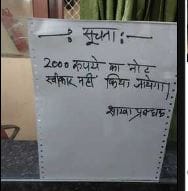 —: सूचना :—
2000 रुपये का नोट
स्वीकार नहीं किया जायेगा।
शाखा प्रबन्धक